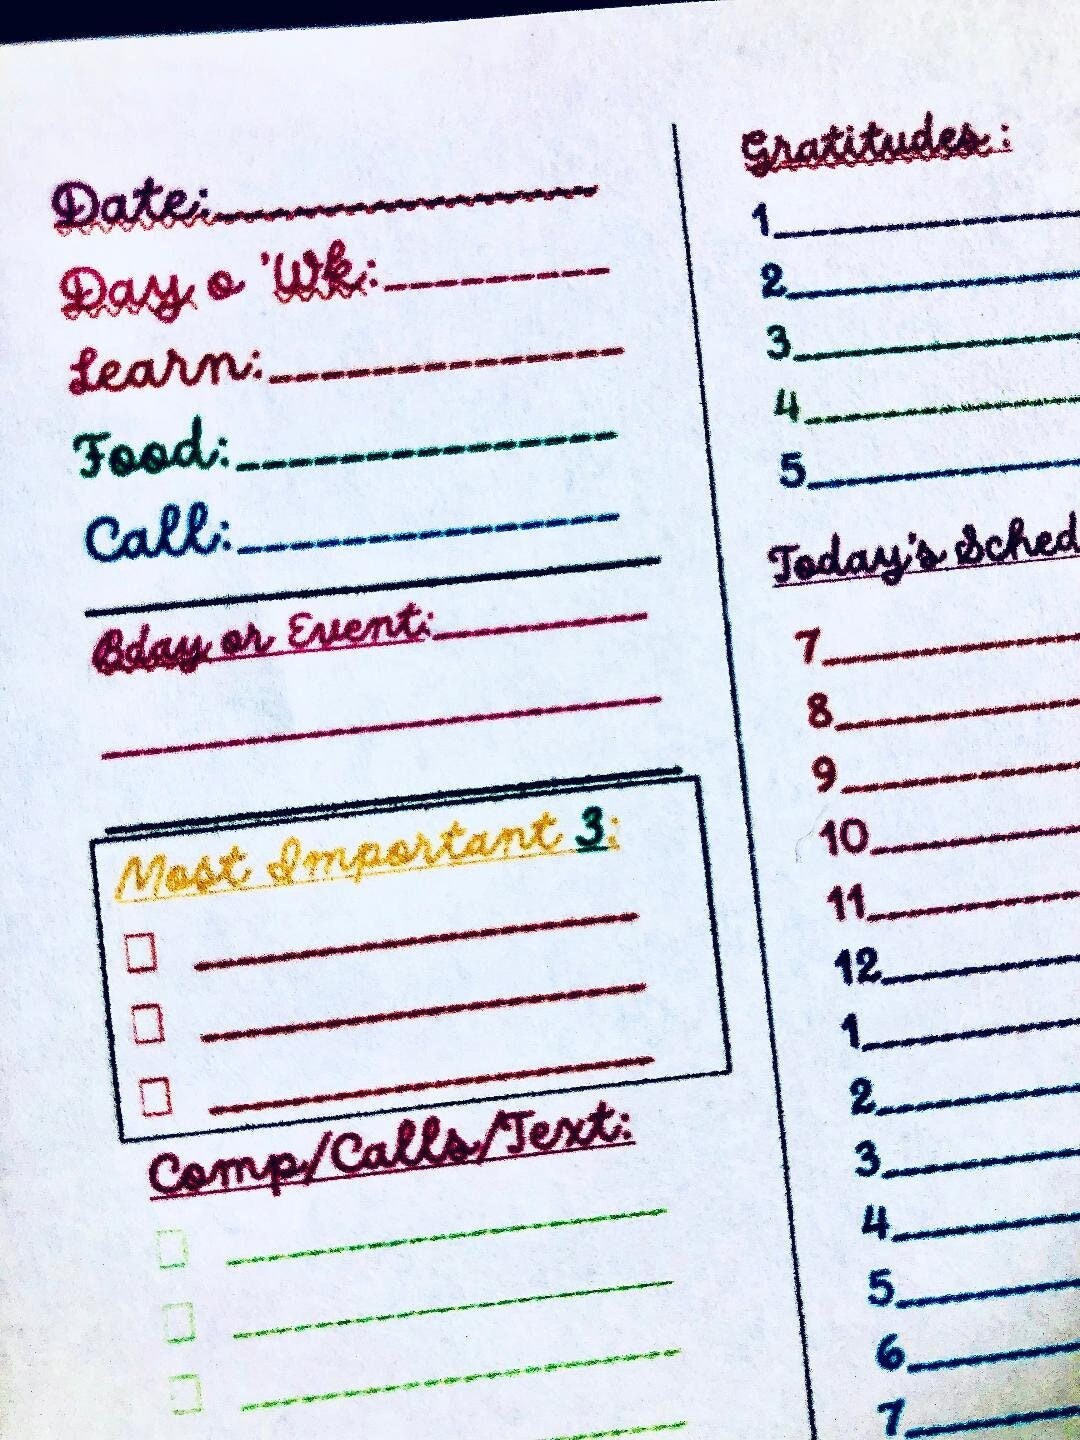 Date:
Day o 'Wk:
Learn:
Food:
Call:
Bday or Event:
Most Important 3:
Comp/Calls/Text:
Gratitudes:
1
2
3
4
5
Today's Sched
7
8
9
10
11
12
1
2
3
4
5
6
7